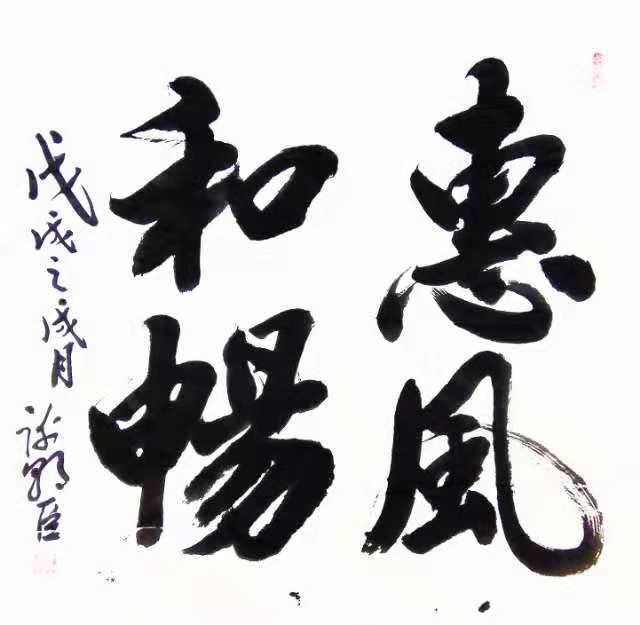 惠風
和暢
戊戌之戌月